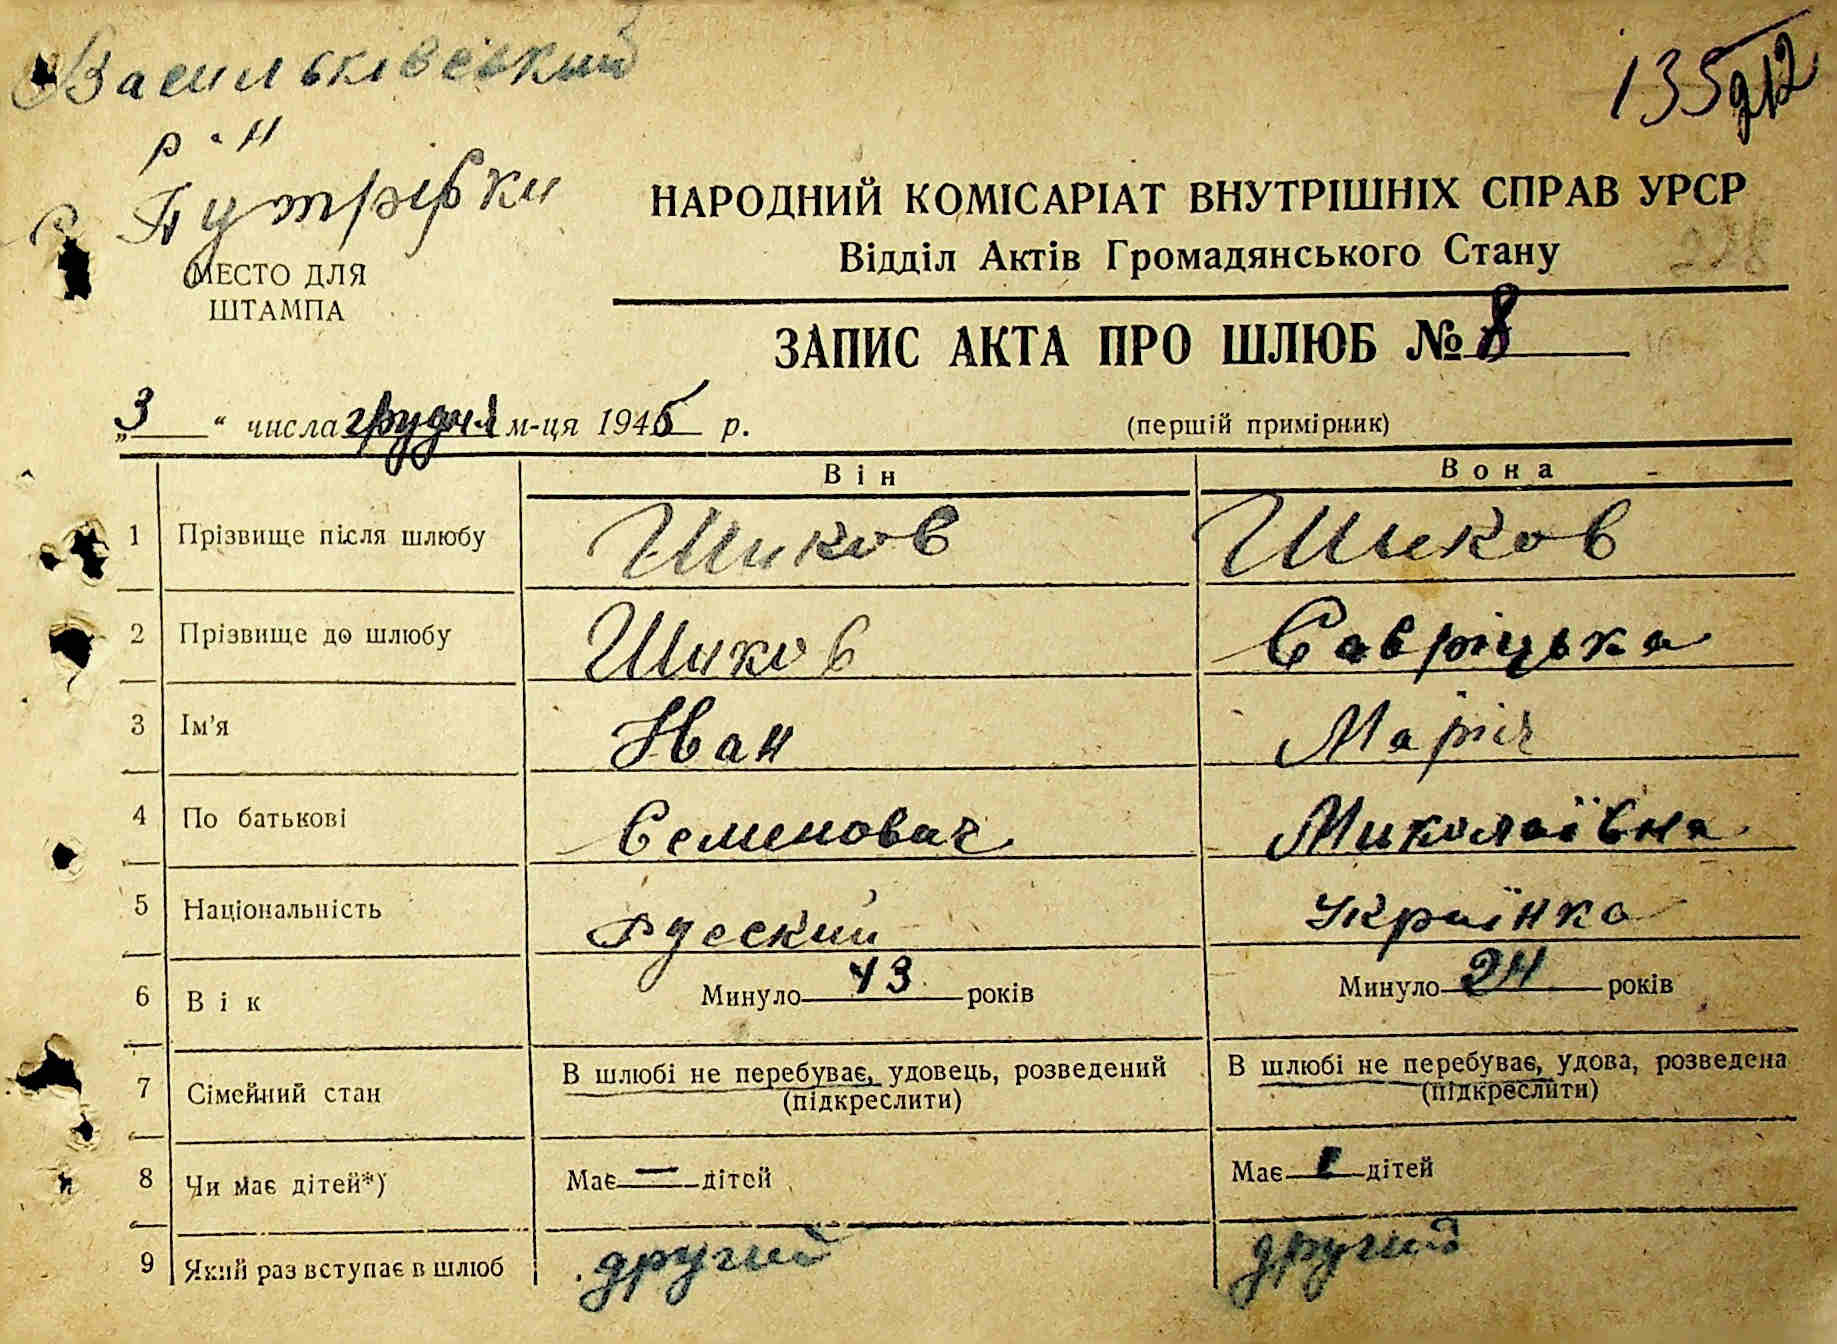 Васильківський
р-н
с Путрівки
135 212
НАРОДНИЙ КОМІСАРІАТ ВНУТРІШНІХ СПРАВ УРСР
Відділ Актів Громадянського Стану
МЕСТО ДЛЯ
ШТАМПА
ЗАПИС АКТА ПРО ШЛЮБ № 8
„3“ числа грудня м-ця 1945 р. (першій примірник)
Він Вона
1 Прізвище після шлюбу Шиков Шиков
2 Прізвище до шлюбу Шиков Савріцька
3 Ім'я Іван Марія
4 По батькові Семенович Миколаївна
5 Національність русский Українка
6 Вік Минуло 43 років Минуло 24 років
7 Сімейний стан В шлюбі не перебуває, удовець, розведений В шлюбі не перебуває, удова, розведена
(підкреслити) (підкреслити)
8 Чи має дітей*) Має — дітей Має 1 дітей
9 Який раз вступає в шлюб другий другий